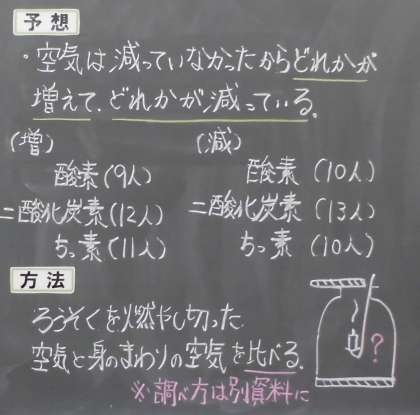 予想
・空気は減っていなかったからどれかが
増えて、どれかが減っている。
(増) (減)
酸素(9人) 酸素(10人)
二酸化炭素(12人) 二酸化炭素(13人)
ちっ素(11人) ちっ素(10人)
方法
ろうそくを燃やし切った
空気と身のまわりの空気を比べる。
?
※調べ方は別資料に